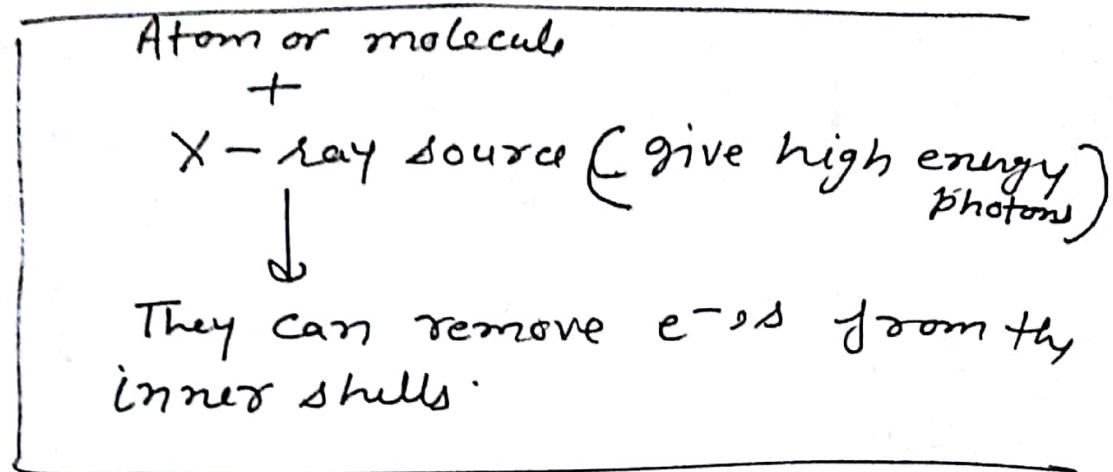 Atom or molecule
+
X-ray source (give high energy
photons)
They can remove e-'s from the
inner shells.